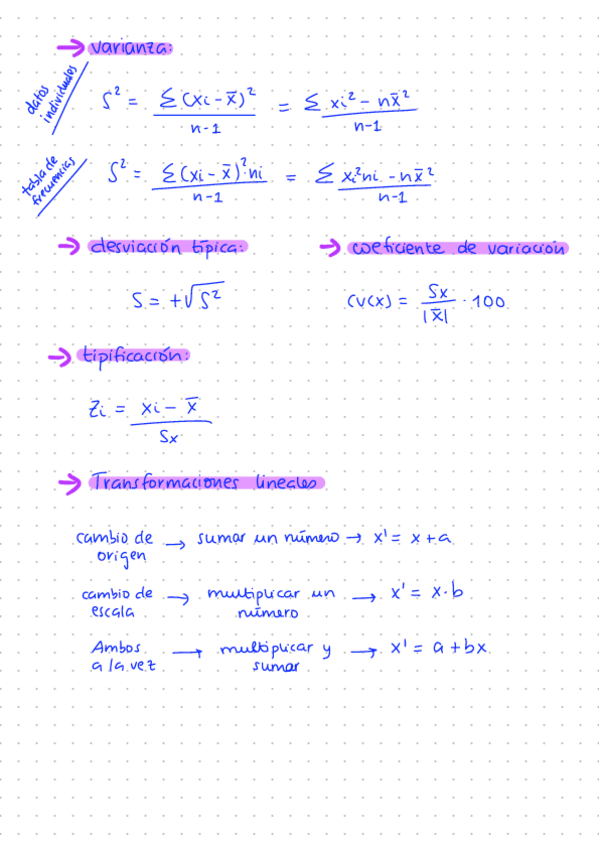 → varianza:
datos individuales
S² = Σ(xi - x̄)² / n-1 = Σ xi² - nx̄² / n-1
tabla de frecuencias
S² = Σ(xi - x̄)²·ni / n-1 = Σ xi²ni - nx̄² / n-1
→ desviación típica:
S = +√S²
→ coeficiente de variación
CV(x) = Sx / |x̄| · 100
→ tipificación:
Zi = xi - x̄ / Sx
→ Transformaciones lineales
cambio de origen → sumar un número → x' = x + a
cambio de escala → multiplicar un número → x' = x · b
Ambos a la vez → multiplicar y sumar → x' = a + bx